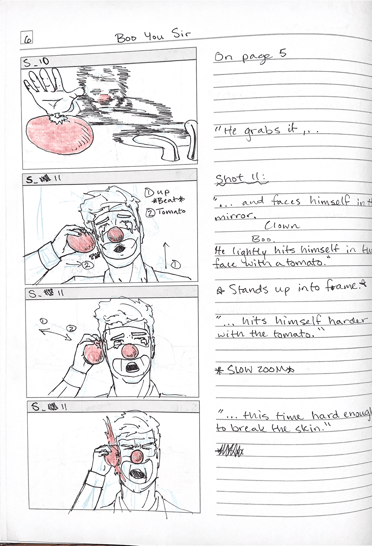 6
Boo You Sir
S_10
On page 5
"He grabs it,...
S_ 11
① up
*Beat*
② Tomato
②
①
Shot 11:
"... and faces himself in
mirror.
Clown
Boo.
He lightly hits himself in
face with a tomato."
* Stands up into frame.*
S_ 11
①
②
"... hits himself harder
with the tomato."
* SLOW ZOOM *
S_ 11
"... this time hard enough
to break the skin."